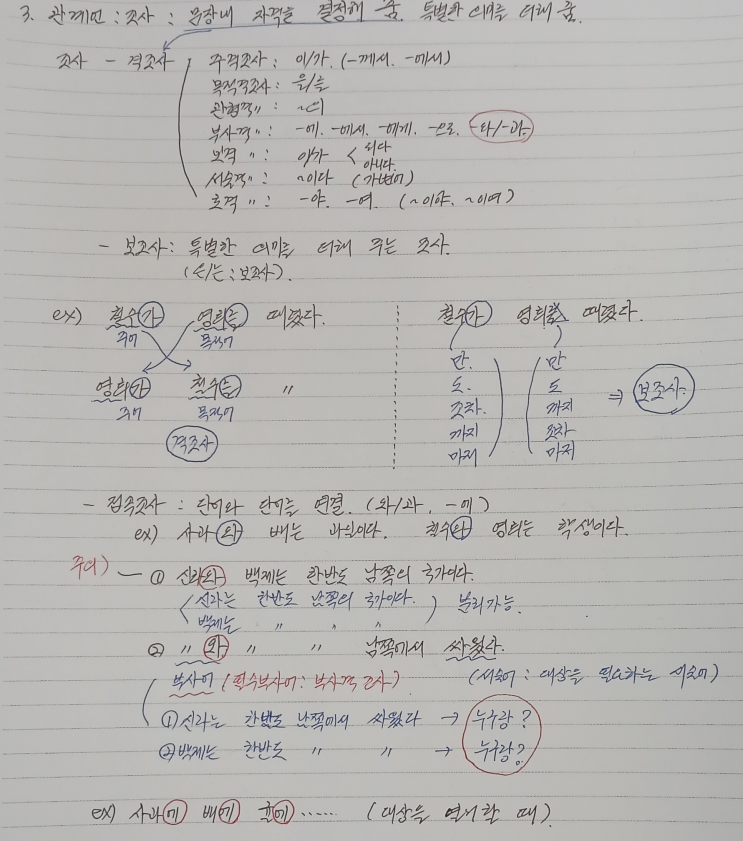 3. 관계언 : 조사 : 문장내 자격을 결정해 줌. 특별한 의미를 더해 줌.
조사 - 격조사 주격조사 : 이/가. (-께서. -에서)
목적격조사 : 을/를
관형격 〃 : ~의
부사격 〃 : -에. -에서. -에게. -으로. -와/-과.
보격 〃 : 이/가 < 되다 아니다.
서술격 〃 : ~이다 (가변어)
호격 〃 : -야. -여. (~이야. ~이여)
- 보조사 : 특별한 의미를 더해 주는 조사.
(은/는 : 보조사).
ex) 철수가 영희를 때렸다.
주어 목적어
영희가 철수를 〃
주어 목적어
격조사
철수가 영희를 때렸다.
만. 만
도. 도
조차. 까지
까지 조차
마저 마저
⇒ 보조사.
- 접속조사 : 단어와 단어를 연결. (와/과, -에)
ex) 사과와 배는 과일이다. 철수와 영희는 학생이다.
주의) - ① 신라와 백제는 한반도 남쪽의 국가이다.
신라는 한반도 남쪽의 국가이다. 분리가능.
백제는 〃 〃 〃
② 〃 와 〃 〃 남쪽에서 싸웠다.
부사어 (필수부사어 : 부사격 조사) (서술어 : 대상을 필요하는 서술어)
① 신라는 한반도 남쪽에서 싸웠다 → 누구랑?
② 백제는 한반도 〃 〃 → 누구랑?
ex) 사과에 배에 귤에 ...... (대상을 열거할 때)